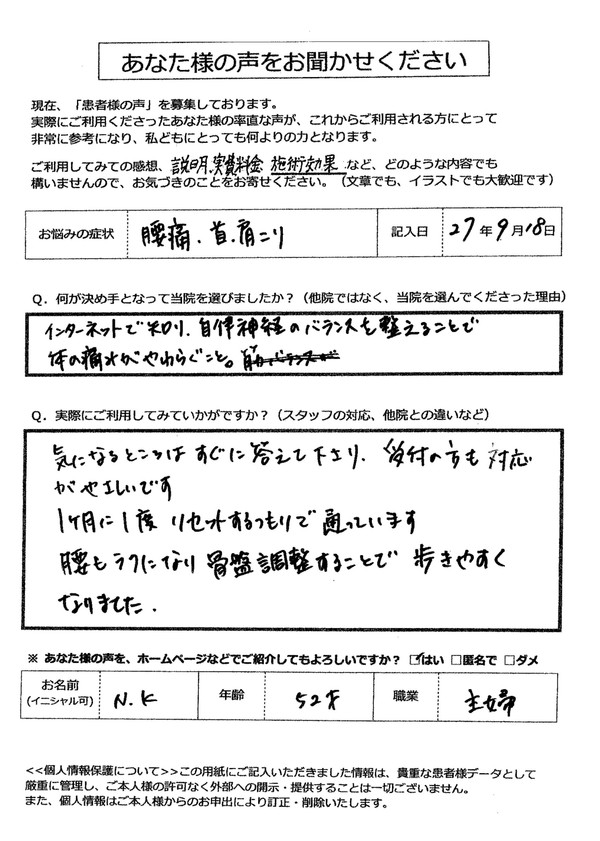 あなた様の声をお聞かせください
現在、「患者様の声」を募集しております。
実際にご利用くださったあなた様の率直な声が、これからご利用される方にとって
非常に参考になり、私どもにとっても何よりの力となります。
ご利用してみての感想、説明、実費料金 施術効果 など、どのような内容でも
構いませんので、お気づきのことをお寄せください。（文章でも、イラストでも大歓迎です）
お悩みの症状 腰痛、首、肩こり 記入日 27年9月18日
Ｑ．何が決め手となって当院を選びましたか？（他院ではなく、当院を選んでくださった理由）
インターネットで知り、自律神経のバランスを整えることで
体の痛みがやわらぐこと。
Ｑ．実際にご利用してみていかがですか？（スタッフの対応、他院との違いなど）
気になるところはすぐに答えて下さり、受付の方も対応
がやさしいです
1ヶ月に1度 リセットするつもりで通っています
腰もラクになり骨盤調整することで歩きやすく
なりました．
※ あなた様の声を、ホームページなどでご紹介してもよろしいですか？ ☑はい □匿名で □ダメ
お名前
(イニシャル可) N.K 年齢 52才 職業 主婦
<<個人情報保護について>>この用紙にご記入いただきました情報は、貴重な患者様データとして
厳重に管理し、ご本人様の許可なく外部への開示・提供することは一切ございません。
また、個人情報はご本人様からのお申出により訂正・削除いたします。